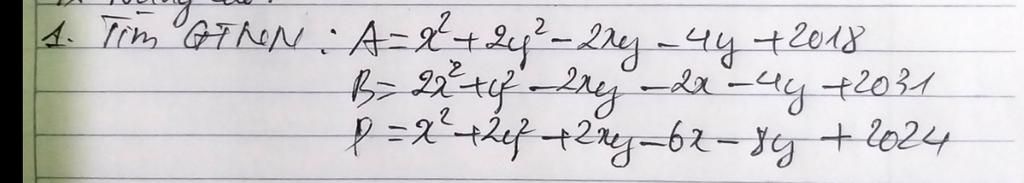 1. Tìm GTNN : A = x² + 2y² - 2xy - 4y + 2018
B = 2x² + y² - 2xy - 2x - 4y + 2031
P = x² + 2y² + 2xy - 6x - 8y + 2024